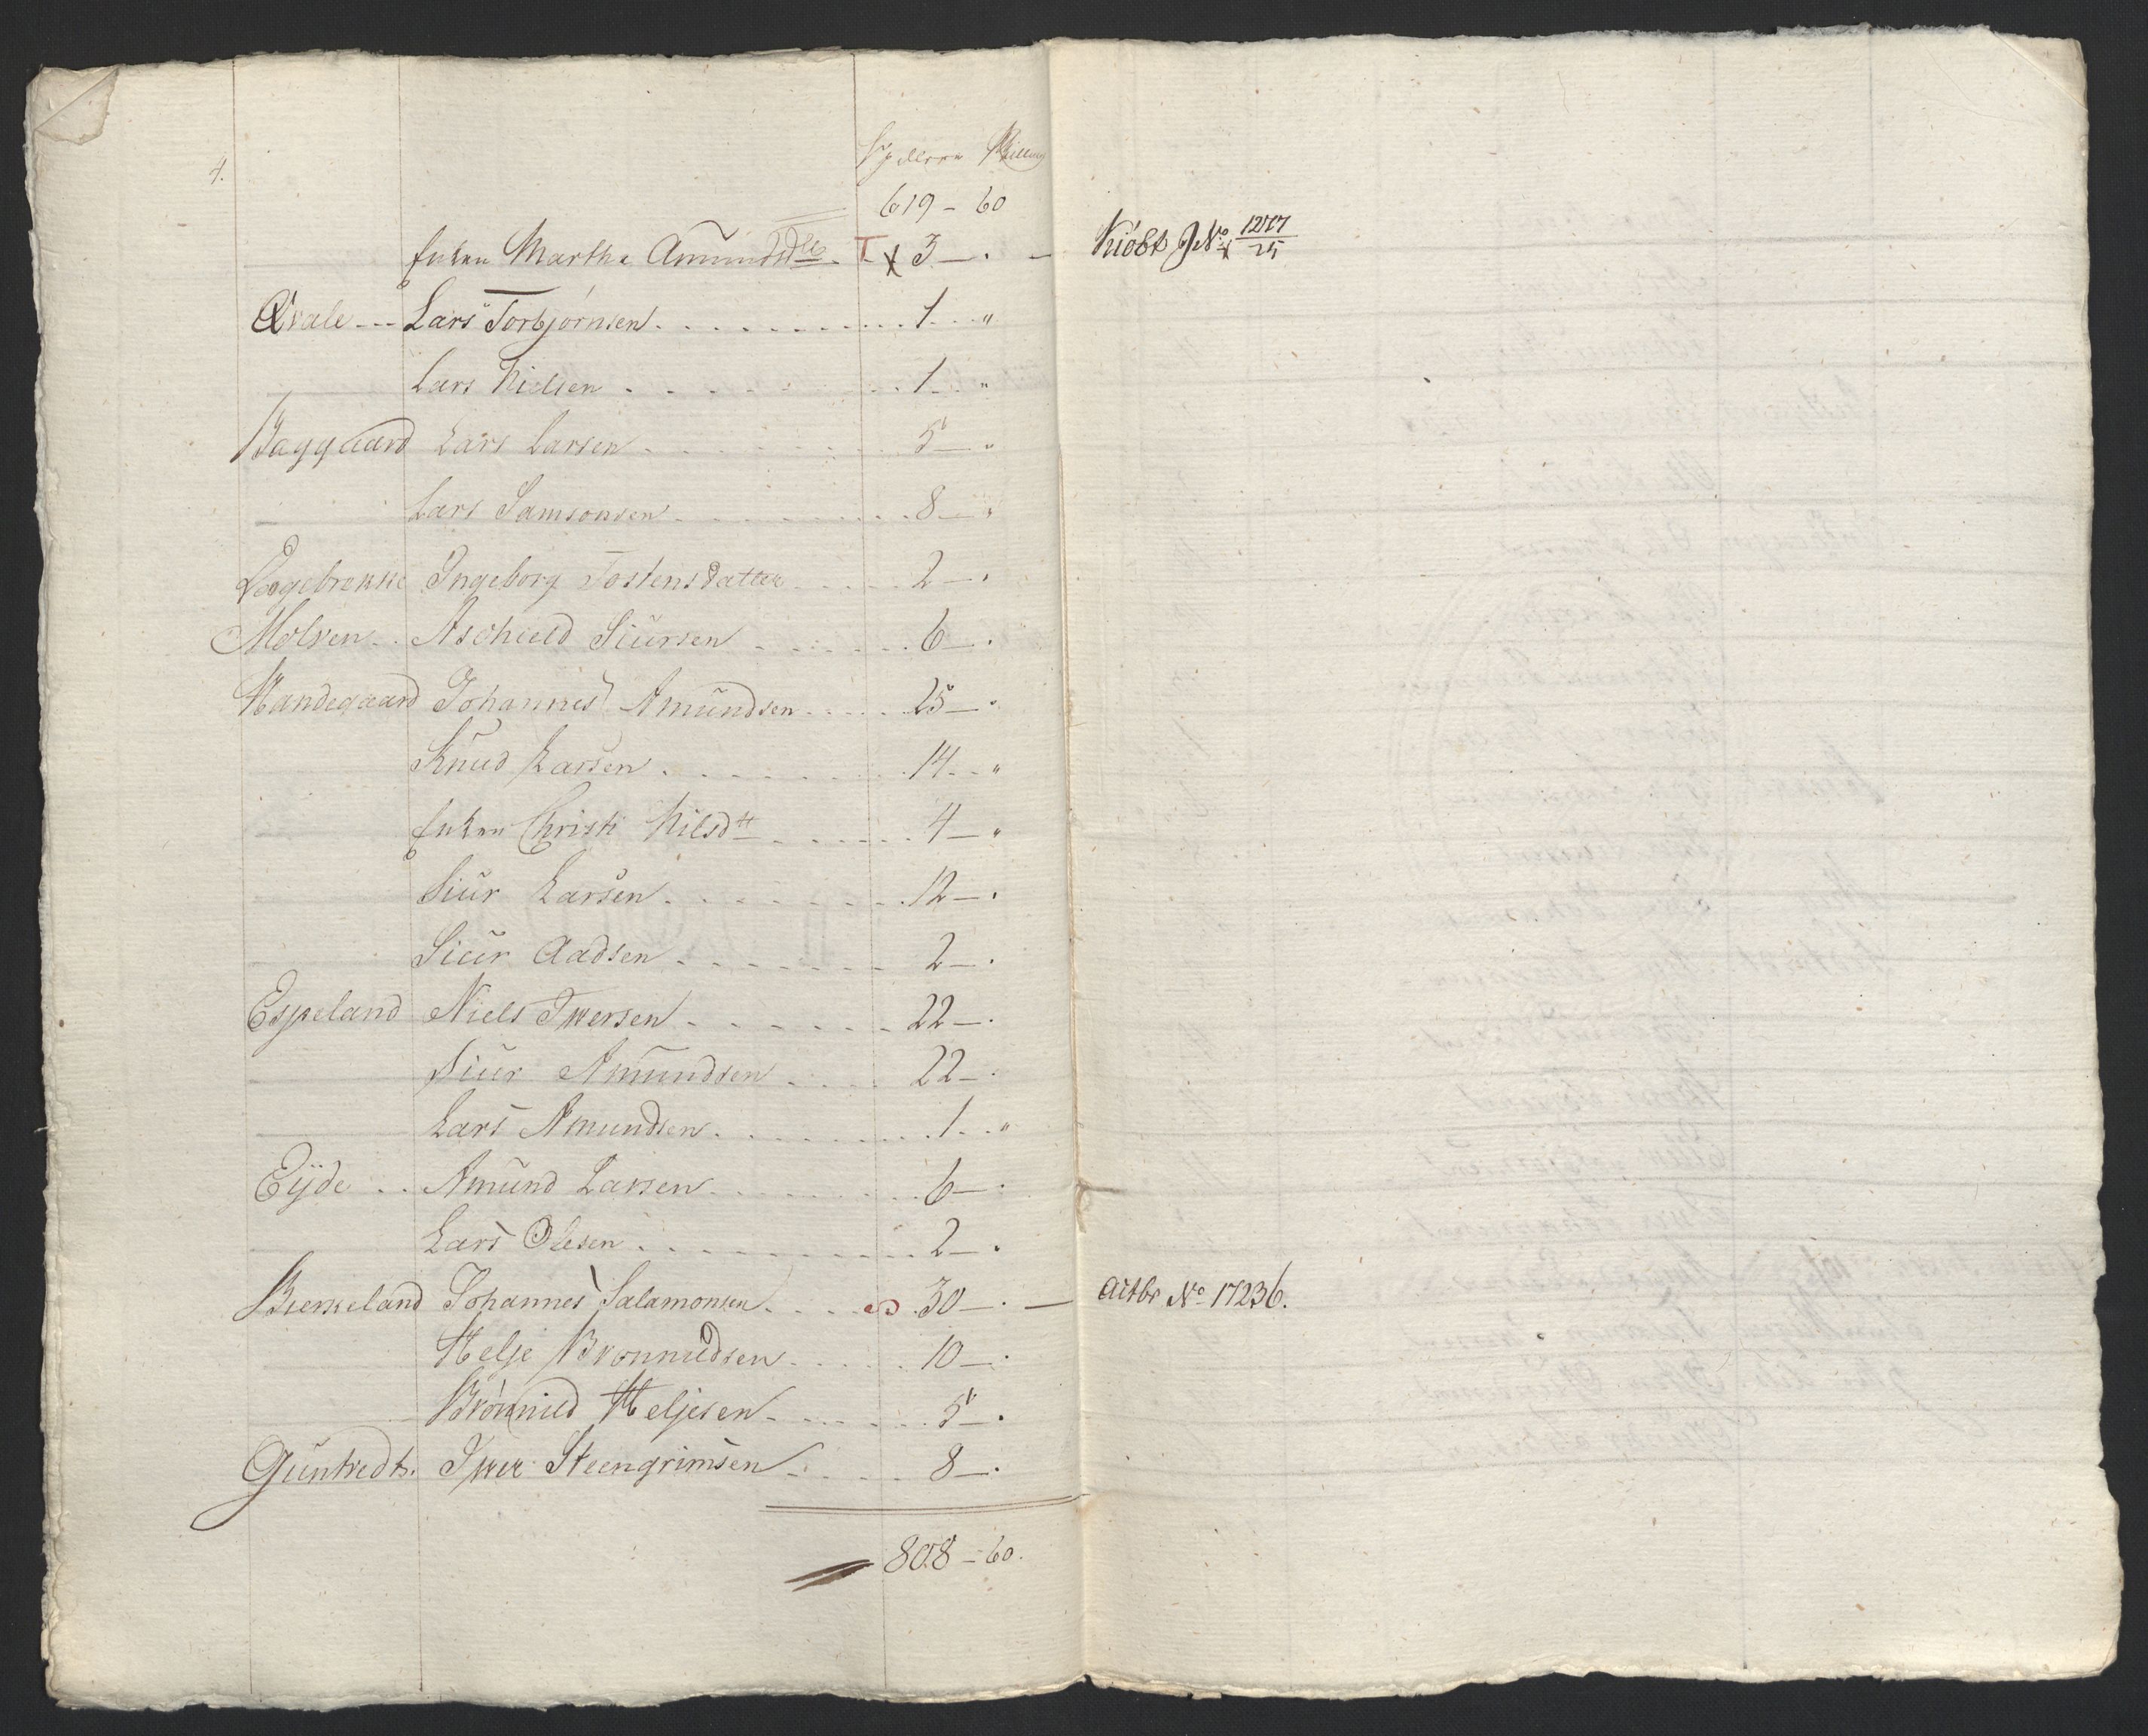 4.
Spdlr Skilling
619 – 60
Enken Martha Amundsdtt. T x 3 – . – Kiöbt JNo 1277/25
Qvale --- Lars Torbjørnsen . . . 1 - "
Lars Nielsen . . . 1 - "
Baggaard Lars Larsen . . . 5 – "
Lars Samsonsen . . . 8 – "
Loogebrekke Ingeborg Tostensdatter . . . 2 – .
Molven . . Aschield Siursen . . . 6 – .
Handegaard Johannes Amundsen . . . 25 – .
Knud Larsen . . . 14 - "
Enken Christi Nilsdtt . . . 4 – "
Siur Larsen . . . 12 – .
Siur Aadsen . . . 2 – .
Espeland Niels Iwersen . . . 22 – .
Siur Amundsen . . . 22 – .
Lars Amundsen . . . 1 - "
Eÿde . . Amund Larsen . . . 6 – .
Lars Olesen . . . 2 – .
Bierkeland Johannes Salamonsen . . . 30 – . – Aitbr No 17236.
Helje Bronnudsen . . . 10 – .
Brönnild Heljesen . . . 5 – .
Guntvedt. Iwer Steengrimsen . . . 8 – .
808 – 60.